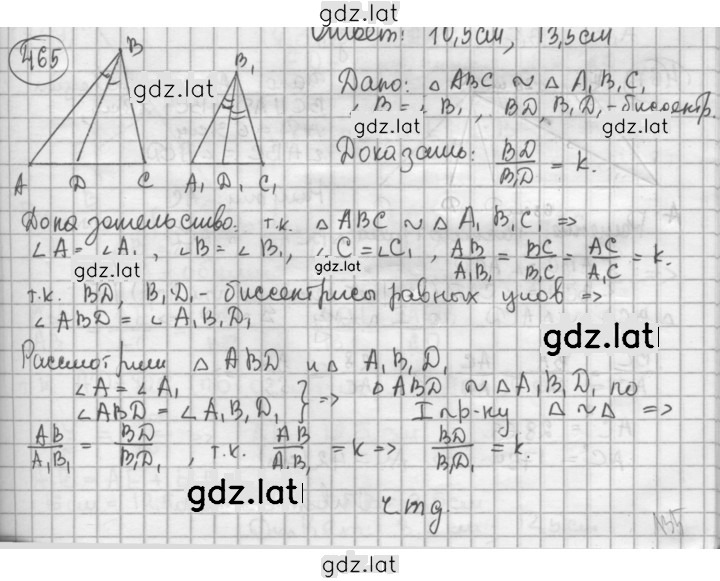 gdz.lat
Ответ: 10,5см, 13,5см
465
B
B₁
A D C A₁ D₁ C₁
gdz.lat
Дано: △ ABC ~ △ A₁B₁C₁
∠B = ∠B₁, BD, B₁D₁ - биссектр.
gdz.lat
Доказать: BD/B₁D₁ = k.
Доказательство: т.к. △ ABC ~ △ A₁B₁C₁ =>
∠A = ∠A₁, ∠B = ∠B₁, ∠C = ∠C₁, AB/A₁B₁ = BC/B₁C₁ = AC/A₁C = k.
gdz.lat
т.к. BD, B₁D₁ - биссектрисы равных углов =>
∠ABD = ∠A₁B₁D₁
gdz.lat
Рассмотрим △ ABD и △ A₁B₁D₁
∠A = ∠A₁
∠ABD = ∠A₁B₁D₁ } => △ABD ~ △A₁B₁D₁ по
I пр-ку △ ~ △ =>
AB/A₁B₁ = BD/B₁D₁, т.к. AB/A₁B₁ = k => BD/B₁D₁ = k.
gdz.lat
чтд.
gdz.lat